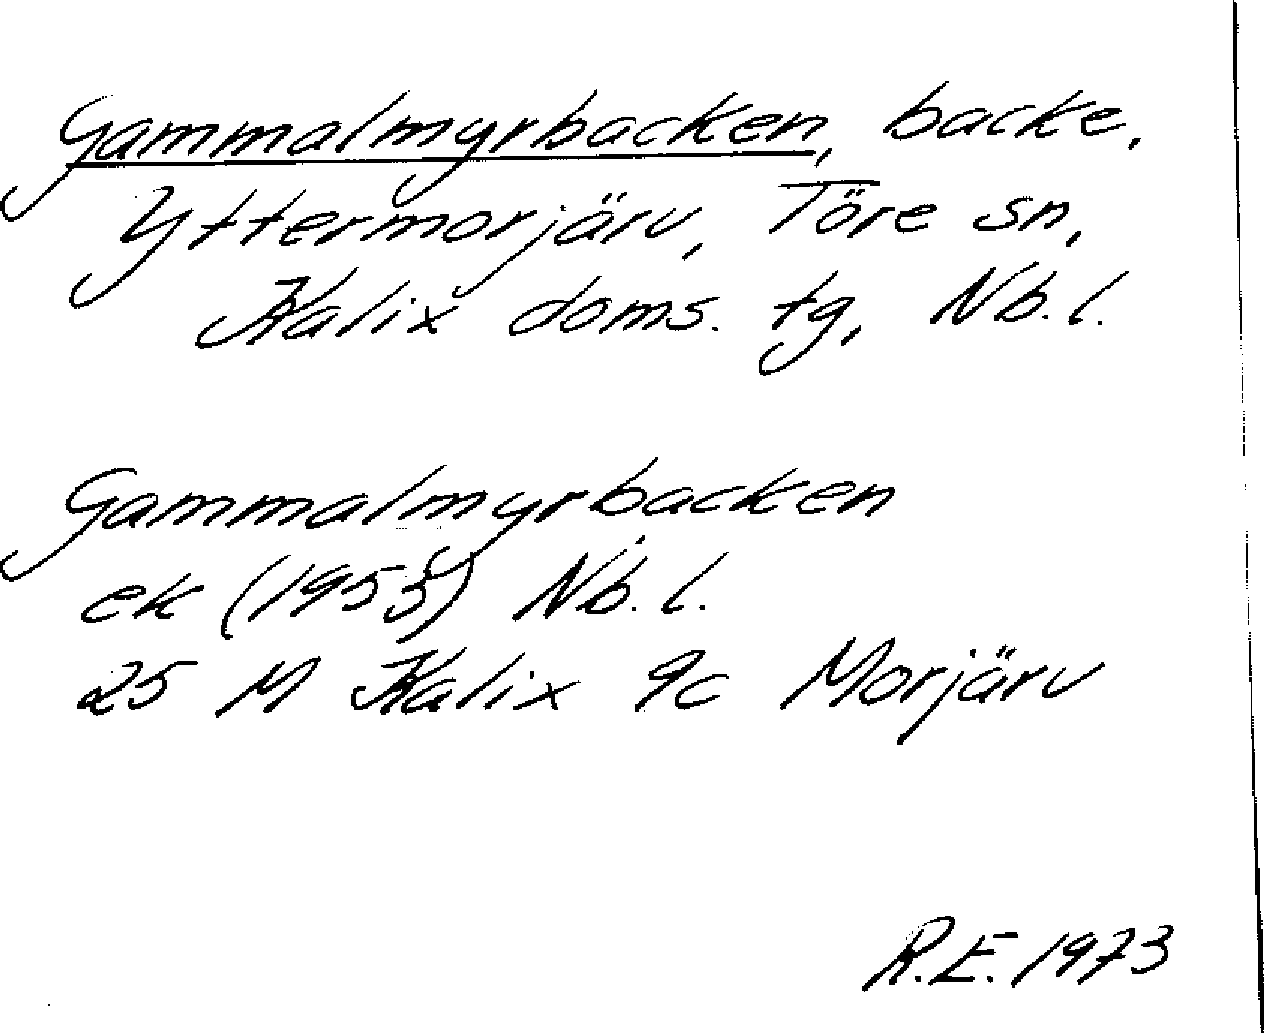 Gammalmyrbacken, backe,
Yttermorjärv, Töre sn,
Kalix doms. tg, Nb. l.
Gammalmyrbacken
ek (1955) Nb. l.
25 M Kalix 9c Morjärv
R.E. 1973